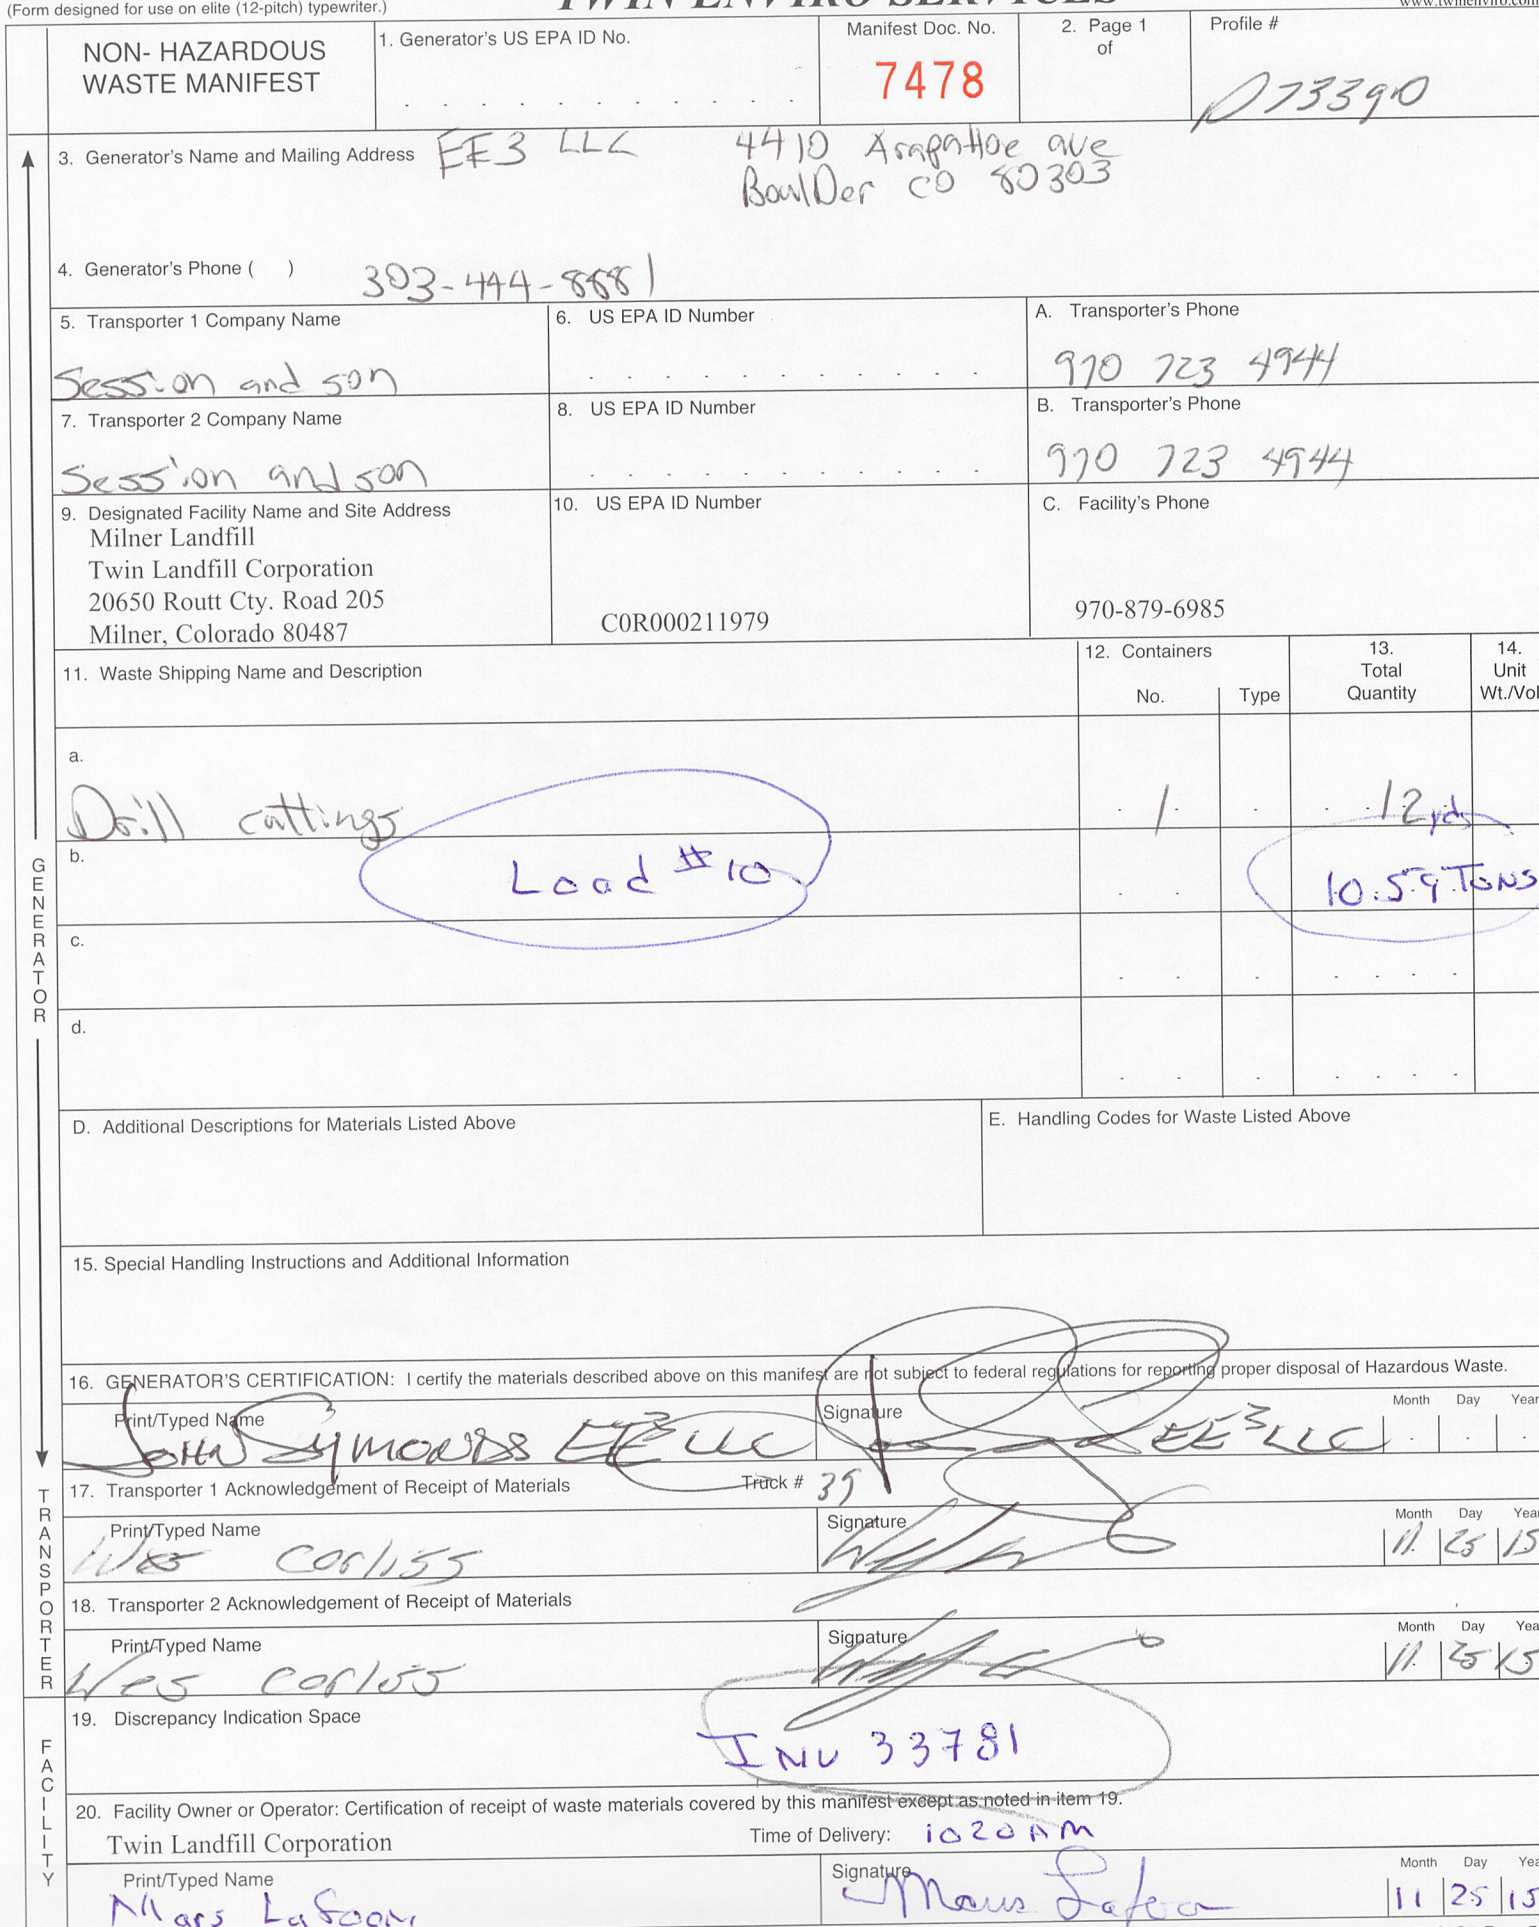 (Form designed for use on elite (12-pitch) typewriter.)
TWIN ENVIRO SERVICES
www.twinenviro.com
NON- HAZARDOUS
WASTE MANIFEST
1. Generator's US EPA ID No.
Manifest Doc. No.
7478
2. Page 1
of
Profile #
D73390
3. Generator's Name and Mailing Address EE3 LLC 4410 Arapahoe ave
Boulder CO 80303
4. Generator's Phone ( ) 303-444-8881
5. Transporter 1 Company Name
Session and son
6. US EPA ID Number
A. Transporter's Phone
970 723 4944
7. Transporter 2 Company Name
Session and son
8. US EPA ID Number
B. Transporter's Phone
970 723 4944
9. Designated Facility Name and Site Address
Milner Landfill
Twin Landfill Corporation
20650 Routt Cty. Road 205
Milner, Colorado 80487
10. US EPA ID Number
C0R000211979
C. Facility's Phone
970-879-6985
11. Waste Shipping Name and Description
12. Containers
No.
Type
13.
Total
Quantity
14.
Unit
Wt./Vol
a.
Drill cuttings
1
12 yds
b.
Load #10
10.59 Tons
c.
d.
D. Additional Descriptions for Materials Listed Above
E. Handling Codes for Waste Listed Above
15. Special Handling Instructions and Additional Information
16. GENERATOR'S CERTIFICATION: I certify the materials described above on this manifest are not subject to federal regulations for reporting proper disposal of Hazardous Waste.
Print/Typed Name
John Symonds EE3 LLC
Signature
EE3 LLC
Month Day Year
17. Transporter 1 Acknowledgement of Receipt of Materials
Truck # 39
Print/Typed Name
Wes Corliss
Signature
Month Day Year
11 25 15
18. Transporter 2 Acknowledgement of Receipt of Materials
Print/Typed Name
Wes Corliss
Signature
Month Day Year
11 25 15
19. Discrepancy Indication Space
INV 33781
20. Facility Owner or Operator: Certification of receipt of waste materials covered by this manifest except as noted in item 19.
Twin Landfill Corporation
Time of Delivery: 1020 AM
Print/Typed Name
Mars LaFoon
Signature
Mars Lafoon
Month Day Year
11 25 15
GENERATOR
TRANSPORTER
FACILITY